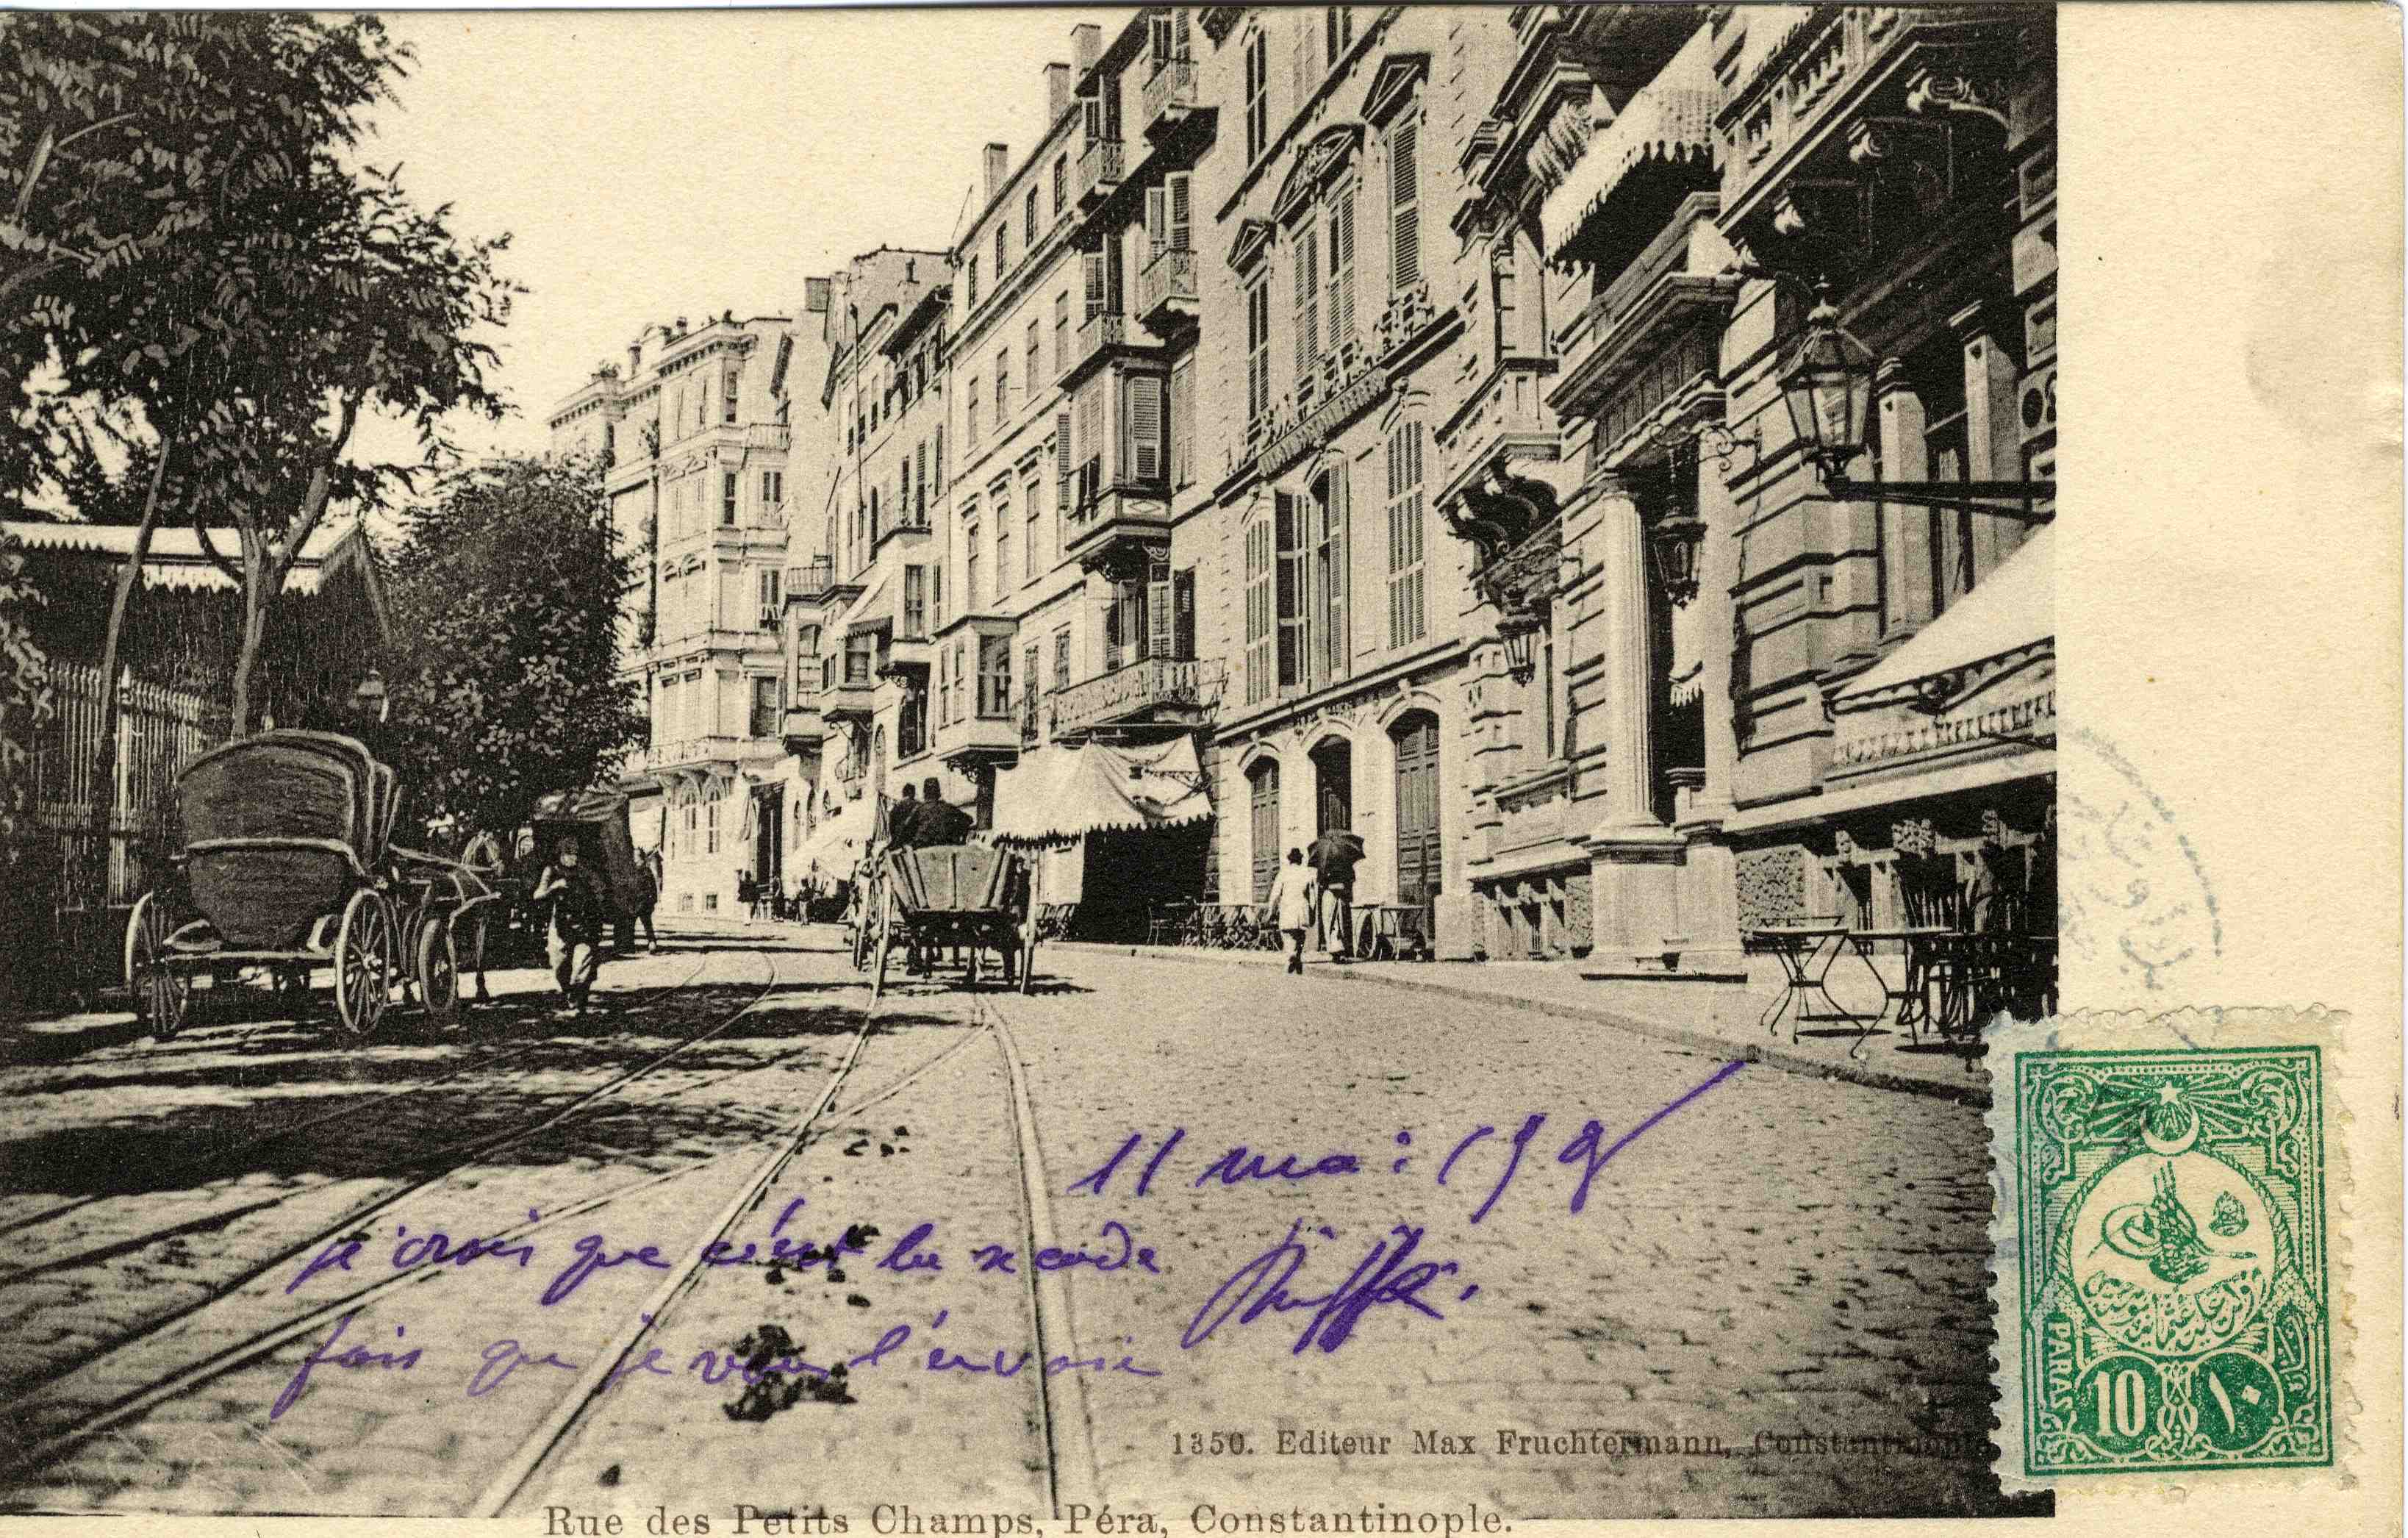 11 mai 190
je crois que c'est la xcode
fois que je vous l'envoie
1350. Editeur Max Fruchtermann, Constantinople
PARAS
10 ١٠
Rue des Petits Champs, Péra, Constantinople.